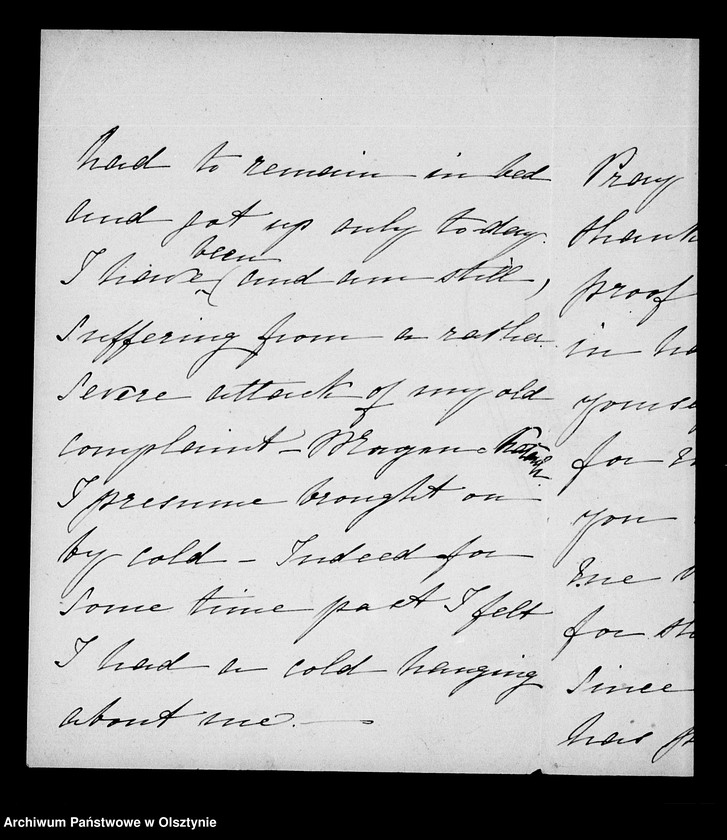 had to remain in bed
and got up only today.
been
I have (and am still,)
suffering from a rather
severe attack of my old
complaint – Magen
I presume brought on
by cold – Indeed for
some time past I felt
I had a cold hanging
about me. —
Pray
thank
proof
in
for
you
me
for
since
has
Archiwum Państwowe w Olsztynie